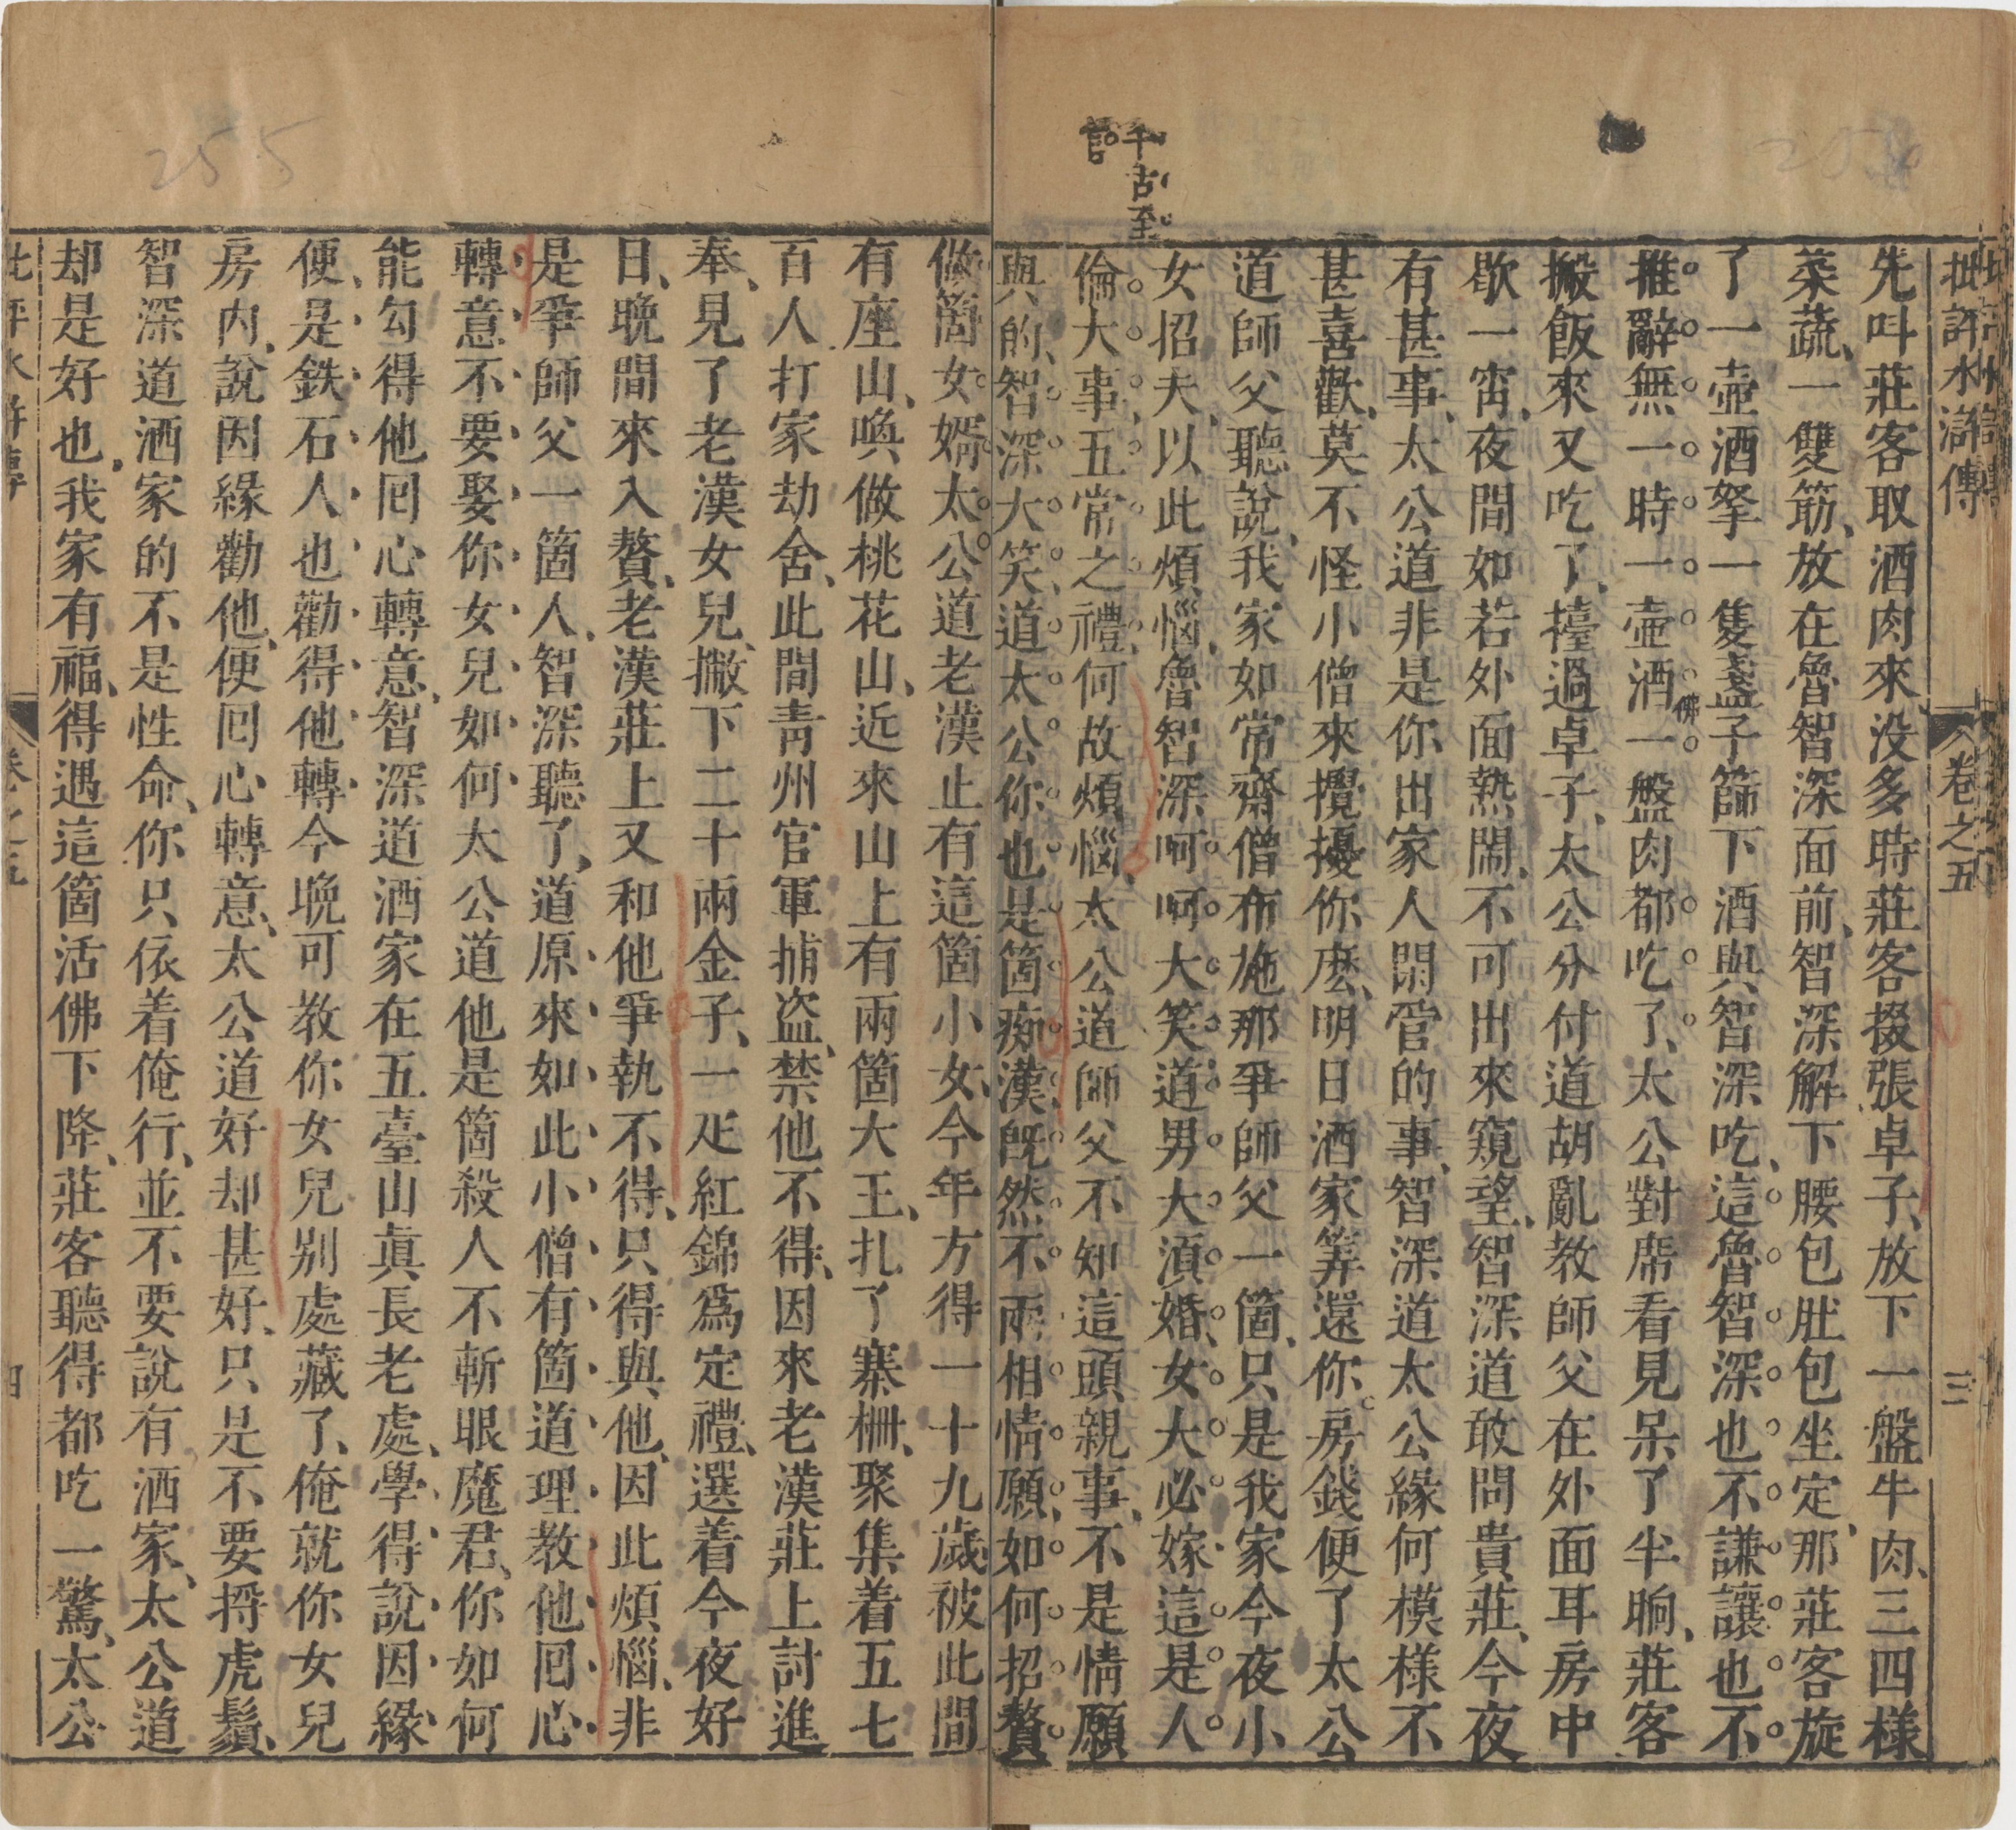 批評水滸傳
卷之五
三
先呌莊客取酒肉來没多時莊客掇張卓子、放下一盤牛肉、三四樣
菜蔬、一雙筯、放在魯智深面前、智深解下腰包肚包坐定、那莊客旋
了一壺酒拏一隻盞子篩下酒與智深吃、這魯智深也不謙讓也不
推辭無一時一壺酒一盤肉都吃了、太公對席看見呆了半晌、莊客
佛
搬飯來又吃了、擡過卓子、太公分付道胡亂教師父在外面耳房中
歇一宵、夜間如若外面熱鬧、不可出來窺望、智深道敢問貴莊、今夜
有甚事、太公道非是你出家人閑管的事、智深道太公緣何模樣不
甚喜歡、莫不怪小僧來攪擾你麽、明日洒家筭還你房錢便了太公
道師父聽說、我家如常齋僧布施那爭師父一箇、只是我家今夜小
女招夫、以此煩惱、魯智深呵呵大笑道男大湏婚、女大必嫁這是人
倫大事、五常之禮、何故煩惱、太公道師父不知這頭親事、不是情願
千古至
言
與的、智深大笑道太公你也是箇痴漢旣然不兩相情願、如何招贅
做箇女婿太公道老漢止有這箇小女、今年方得一十九歲被此間
有座山、喚做桃花山、近來山上有兩箇大王、扎了寨柵、聚集着五七
百人打家劫舍、此間靑州官軍捕盗、禁他不得、因來老漢莊上討進
奉、見了老漢女兒、撇下二十兩金子、一疋紅錦爲定禮、選着今夜好
日、晚間來入贅、老漢莊上又和他爭執不得、只得與他、因此煩惱、非
是爭師父一箇人、智深聽了、道原來如此小僧有箇道理教他囘心
轉意不要娶你女兒如何太公道他是箇殺人不斬眼魔君、你如何
能勾得他囘心轉意、智深道洒家在五臺山眞長老處、學得說因緣
便是鉄石人也勸得他轉今晚可教你女兒别處藏了、俺就你女兒
房内、說因緣勸他、便囘心轉意、太公道好却甚好、只是不要捋虎鬚、
智深道洒家的不是性命、你只依着俺行、並不要說有洒家、太公道
却是好也、我家有福、得遇這箇活佛下降、莊客聽得都吃一驚、太公
批評水滸傳
卷之五
四
255